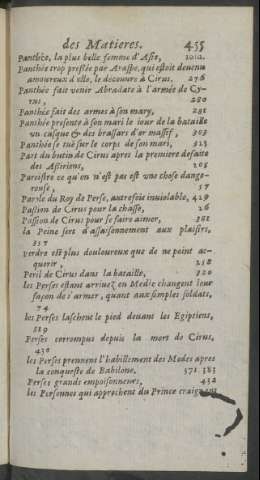 des Matieres. 455
Panthée, la plus belle femme d'Asie, ibid.
Panthée trop pressée par Araspe, qui estoit devenu
amoureux d'elle, le découvre à Cirus, 276
Panthée fait venir Abradate à l'armée de Cy-
rus, 280
Panthée fait des armes à son mary, 291
Panthée presente à son mari le jour de la bataille
un casque & des brassars d'or massif, 303
Panthée se tuë sur le corps de son mari, 323
Part du butin de Cirus apres la premiere defaite
des Assiriens, 205
Paroistre ce qu'on n'est pas est une chose dange-
reuse, 57
Parole du Roy de Perse, autrefois inviolable, 429
Passion de Cirus pour la chasse, 26
Passion de Cirus pour se faire aimer, 382
la Peine sert d'assaisonnement aux plaisirs,
357
perdre est plus douloureux que de ne point ac-
querir, 258
Peril de Cirus dans la bataille, 320
les Perses estant arrivez en Medie changent leur
façon de s'armer, quant aux simples soldats,
74
les Perses laschent le pied devant les Egiptiens,
319
Perses corrompus depuis la mort de Cirus,
430
les Perses prennent l'habillement des Medes apres
la conqueste de Babilone, 371 383
Perses grands empoisonneurs, 432
les Personnes qui approchent du Prince craignent